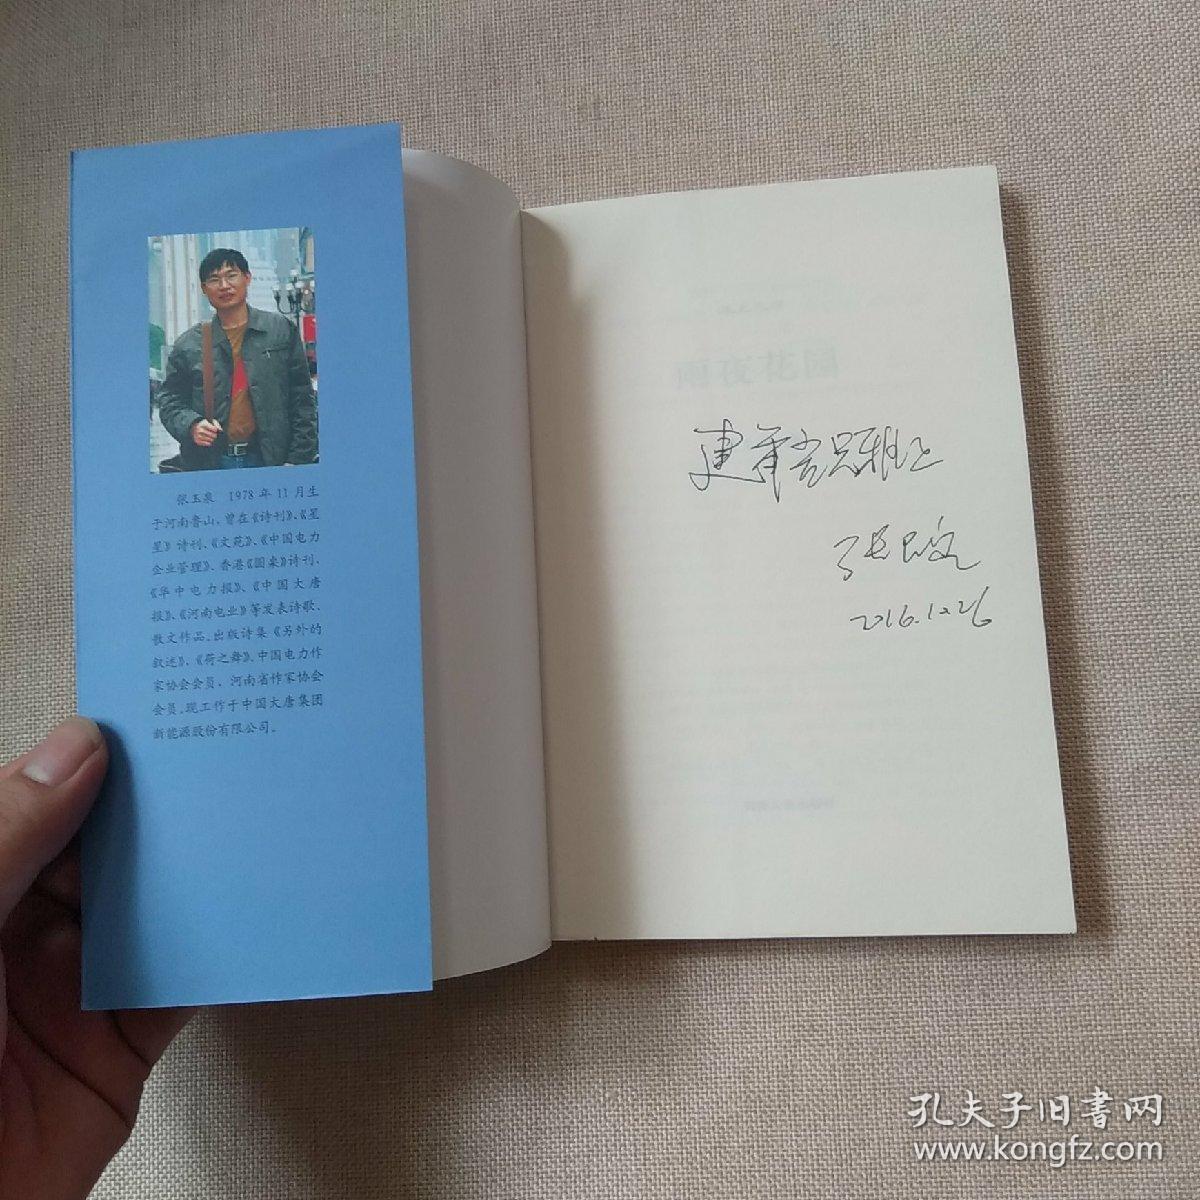 张玉泉 1978年11月生
于河南鲁山,曾在《诗刊》、《星
星》诗刊、《文苑》、《中国电力
企业管理》、香港《圆桌》诗刊、
《华中电力报》、《中国大唐
报》、《河南电业》等发表诗歌、
散文作品,出版诗集《另外的
叙述》、《荷之舞》,中国电力作
家协会会员、河南省作家协会
会员,现工作于中国大唐集团
新能源股份有限公司。
雨夜花园
建军吾兄雅正
张玉泉
2016.10.26
孔夫子旧书网
www.kongfz.com